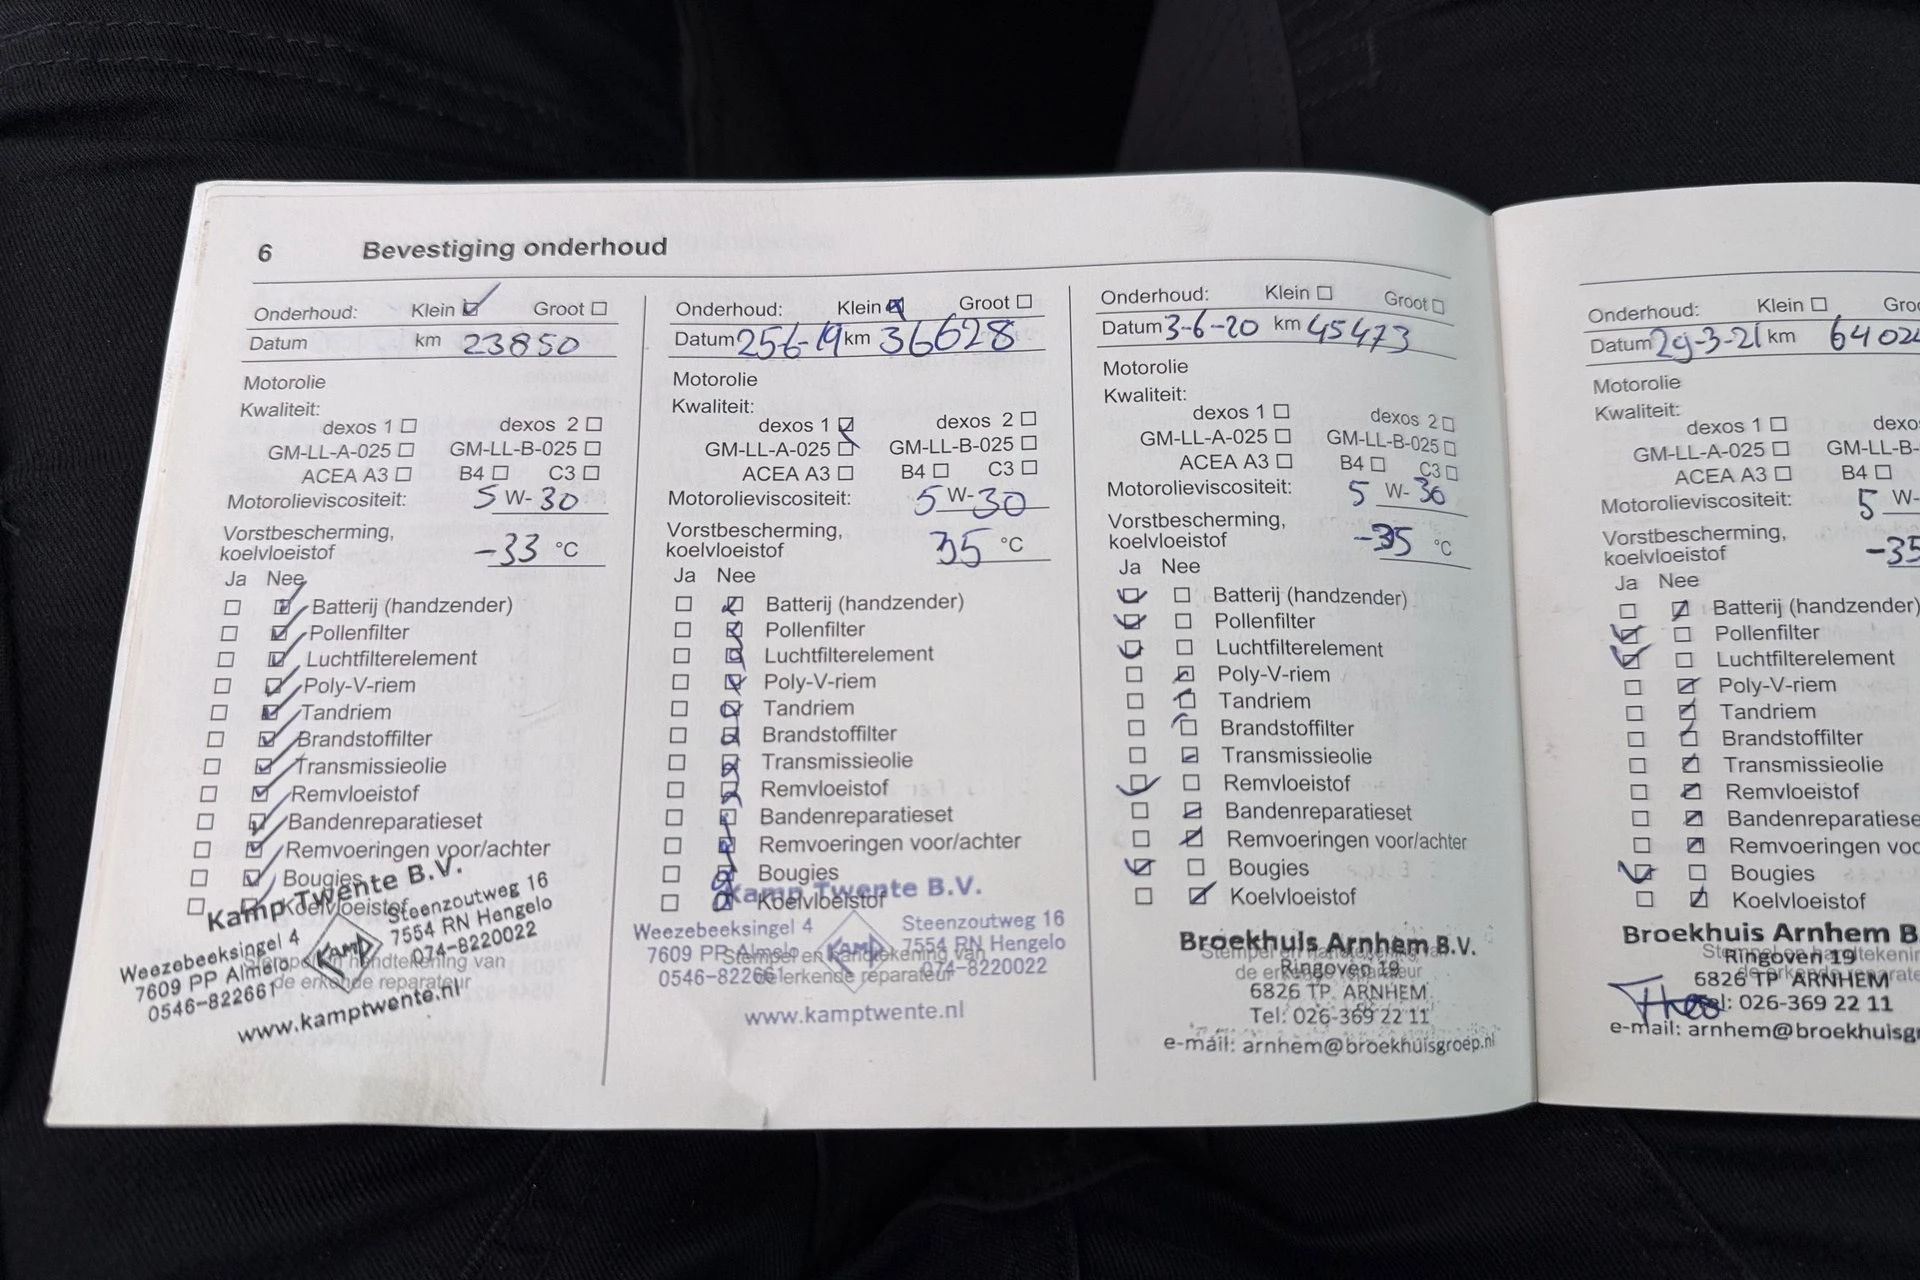 6 Bevestiging onderhoud
Onderhoud: Klein Groot
Datum km 23850
Motorolie
Kwaliteit:
dexos 1 dexos 2
GM-LL-A-025 GM-LL-B-025
ACEA A3 B4 C3
Motorolieviscositeit: 5 W- 30
Vorstbescherming,
koelvloeistof -33 °C
Ja Nee
Batterij (handzender)
Pollenfilter
Luchtfilterelement
Poly-V-riem
Tandriem
Brandstoffilter
Transmissieolie
Remvloeistof
Bandenreparatieset
Remvoeringen voor/achter
Bougies
Koelvloeistof
Kamp Twente B.V.
Weezebeeksingel 4 Steenzoutweg 16
7609 PP Almelo KAMP 7554 RN Hengelo
0546-822661 074-8220022
Stempel en handtekening van
de erkende reparateur
www.kamptwente.nl
Onderhoud: Klein Groot
Datum 256-19 km 36628
Motorolie
Kwaliteit:
dexos 1 dexos 2
GM-LL-A-025 GM-LL-B-025
ACEA A3 B4 C3
Motorolieviscositeit: 5 W- 30
Vorstbescherming,
koelvloeistof 35 °C
Ja Nee
Batterij (handzender)
Pollenfilter
Luchtfilterelement
Poly-V-riem
Tandriem
Brandstoffilter
Transmissieolie
Remvloeistof
Bandenreparatieset
Remvoeringen voor/achter
Bougies
Koelvloeistof
Kamp Twente B.V.
Weezebeeksingel 4 Steenzoutweg 16
7609 PP Almelo KAMP 7554 RN Hengelo
0546-822661 074-8220022
Stempel en handtekening van
de erkende reparateur
www.kamptwente.nl
Onderhoud: Klein Groot
Datum 3-6-20 km 45473
Motorolie
Kwaliteit:
dexos 1 dexos 2
GM-LL-A-025 GM-LL-B-025
ACEA A3 B4 C3
Motorolieviscositeit: 5 W- 30
Vorstbescherming,
koelvloeistof -35 °C
Ja Nee
Batterij (handzender)
Pollenfilter
Luchtfilterelement
Poly-V-riem
Tandriem
Brandstoffilter
Transmissieolie
Remvloeistof
Bandenreparatieset
Remvoeringen voor/achter
Bougies
Koelvloeistof
Broekhuis Arnhem B.V.
Stempel en handtekening van
de erkende reparateur
Ringoven 19
6826 TP ARNHEM
Tel: 026-369 22 11
e-mail: arnhem@broekhuisgroep.nl
Onderhoud: Klein Groo
Datum 29-3-21 km 6402
Motorolie
Kwaliteit:
dexos 1 dexo
GM-LL-A-025 GM-LL-B-
ACEA A3 B4
Motorolieviscositeit: 5 W-
Vorstbescherming,
koelvloeistof -35
Ja Nee
Batterij (handzender)
Pollenfilter
Luchtfilterelement
Poly-V-riem
Tandriem
Brandstoffilter
Transmissieolie
Remvloeistof
Bandenreparatiese
Remvoeringen voo
Bougies
Koelvloeistof
Broekhuis Arnhem B
Stempel en handtekenin
de erkende reparate
Ringoven 19
6826 TP ARNHEM
Tel: 026-369 22 11
e-mail: arnhem@broekhuisg